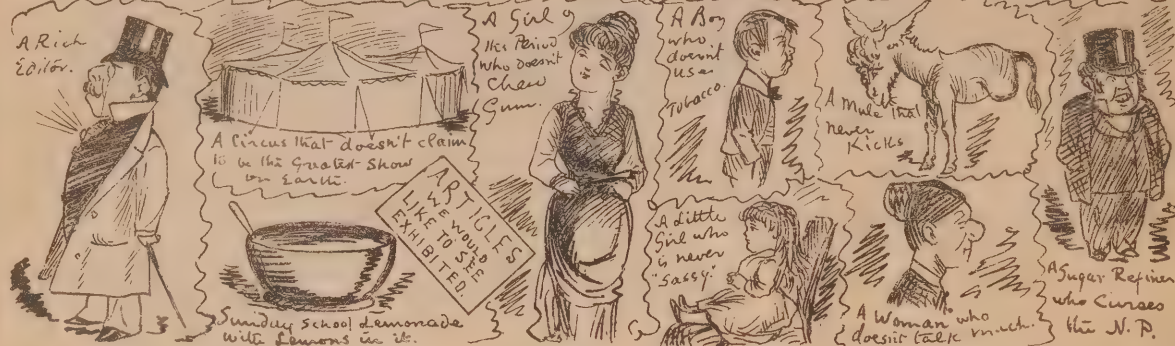 A Rich
Editor.
A Circus that doesn't claim
to be the Greatest Show
on Earth.
Sunday School Lemonade
with Lemons in it.
ARTICLES
WE WOULD
LIKE TO SEE
EXHIBITED.
A Girl of
this Period
who doesn't
Chew
Gum.
A Boy
who
doesnt
use
Tobacco.
A Little
Girl who
is never
"sassy."
A Mule that
never
Kicks
A Woman who
doesn't talk much.
A Sugar Refiner
who Curses
the N. P.